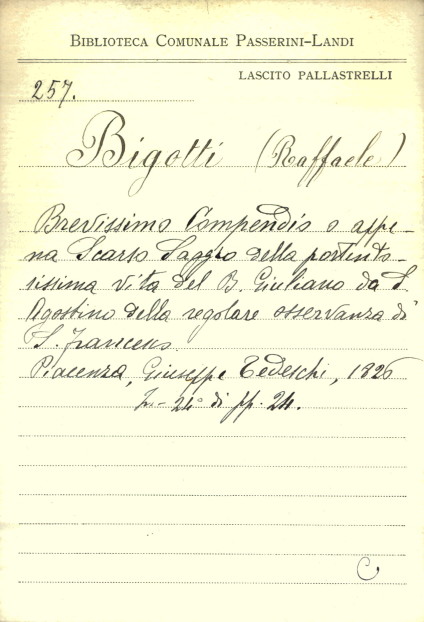 BIBLIOTECA COMUNALE PASSERINI-LANDI
LASCITO PALLASTRELLI
257.
Bigotti (Raffaele)
Brevissimo Compendio o appe-
na Scarso Saggio della portento-
sissima vita del B. Giuliano da S.
Agostino della regolare osservanza di
S. Francesco.
Piacenza, Giuseppe Tedeschi, 1826
In-24° di pp. 24.
C